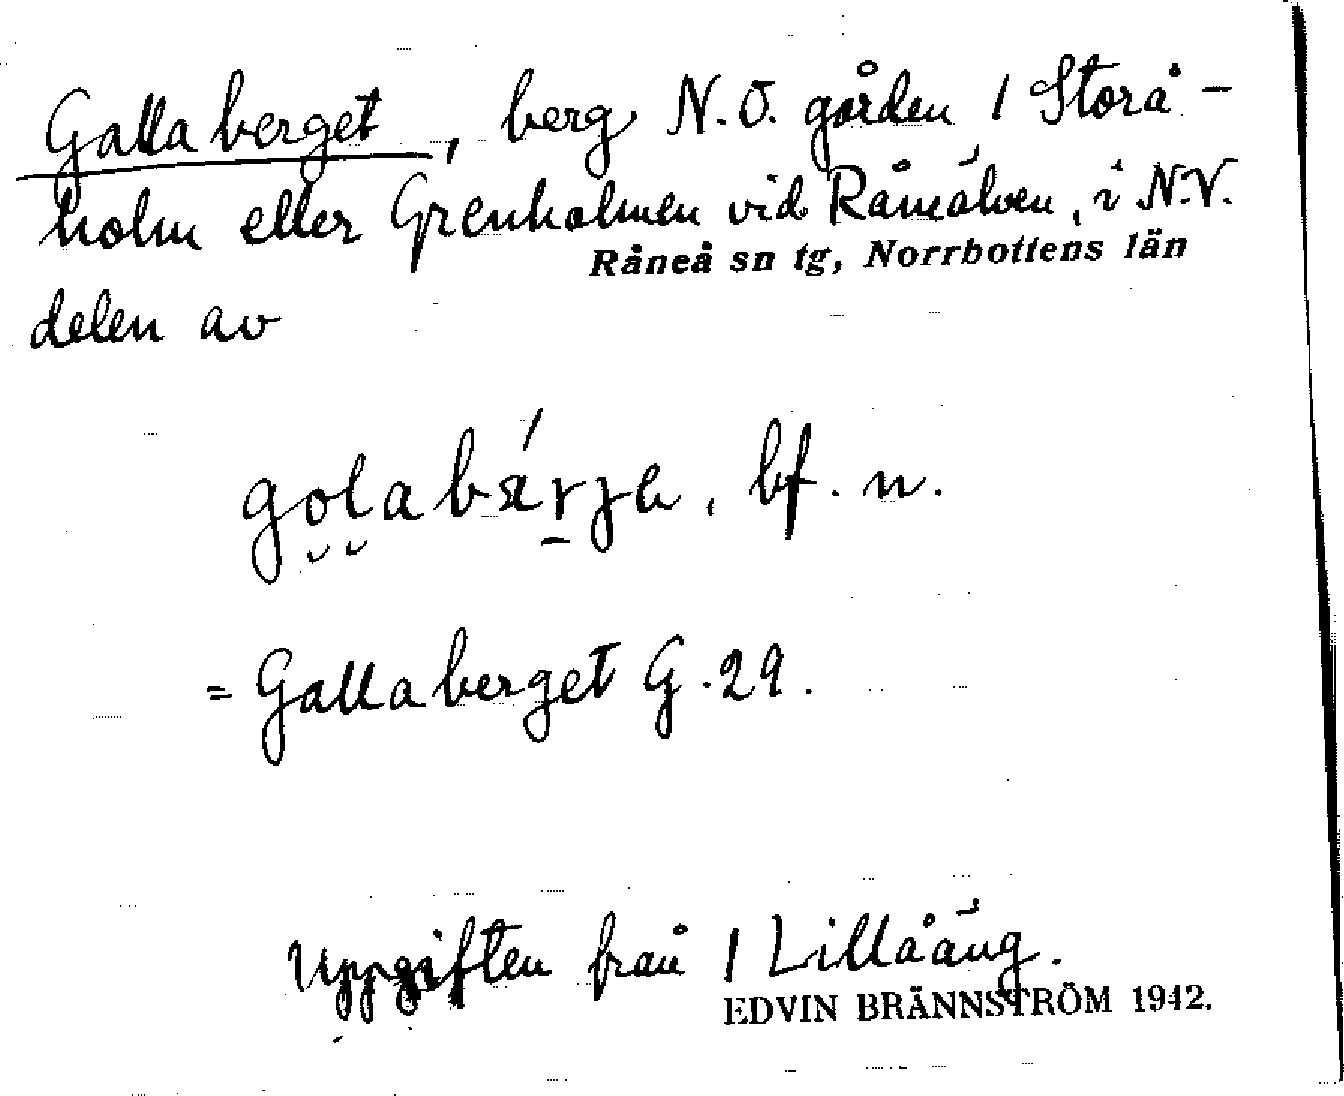 Gallaberget, berg N.O. gården 1 Storå-
holm eller Grenholmen vid Råneälven, i N.V.
Råneå sn tg, Norrbottens län
delen av
golabärje, bf. n.
= Gallaberget G.29.
Uppgiften från 1 Lillåäng.
EDVIN BRÄNNSTRÖM 1942.